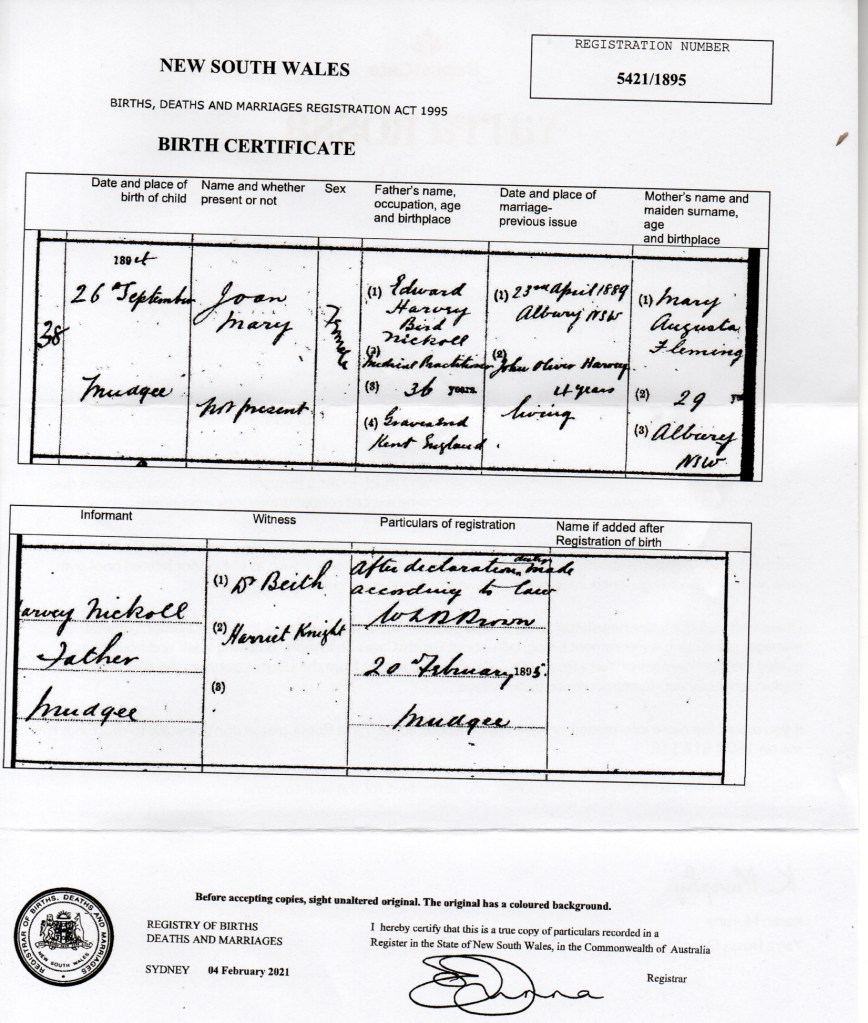 REGISTRATION NUMBER
5421/1895
NEW SOUTH WALES
BIRTHS, DEATHS AND MARRIAGES REGISTRATION ACT 1995
BIRTH CERTIFICATE
Date and place of
birth of child
Name and whether
present or not
Sex
Father's name,
occupation, age
and birthplace
Date and place of
marriage-
previous issue
Mother's name and
maiden surname,
age
and birthplace
38
1894
26th September
Mudgee
Joan
Mary
not present
Female
(1) Edward
Harvey
Bird
Nickoll
(2)
Medical Practitioner
(3) 36 years.
(4) Gravesend
Kent England
(1) 23rd April 1889
Albury NSW
(2)
John Oliver Harvey
4 years
living
(1) Mary
Augusta
Fleming
(2) 29
(3) Albury
NSW
Informant
Witness
Particulars of registration
Name if added after
Registration of birth
arvey Nickoll
Father
Mudgee
(1) Dr Beith
(2) Harriet Knight
(3)
After declaration duly made
according to law
Brown
20th February 1895.
Mudgee
Before accepting copies, sight unaltered original. The original has a coloured background.
REGISTRAR OF BIRTHS, DEATHS AND MARRIAGES
NEW SOUTH WALES
REGISTRY OF BIRTHS
DEATHS AND MARRIAGES
SYDNEY 04 February 2021
I hereby certify that this is a true copy of particulars recorded in a
Register in the State of New South Wales, in the Commonwealth of Australia
Registrar